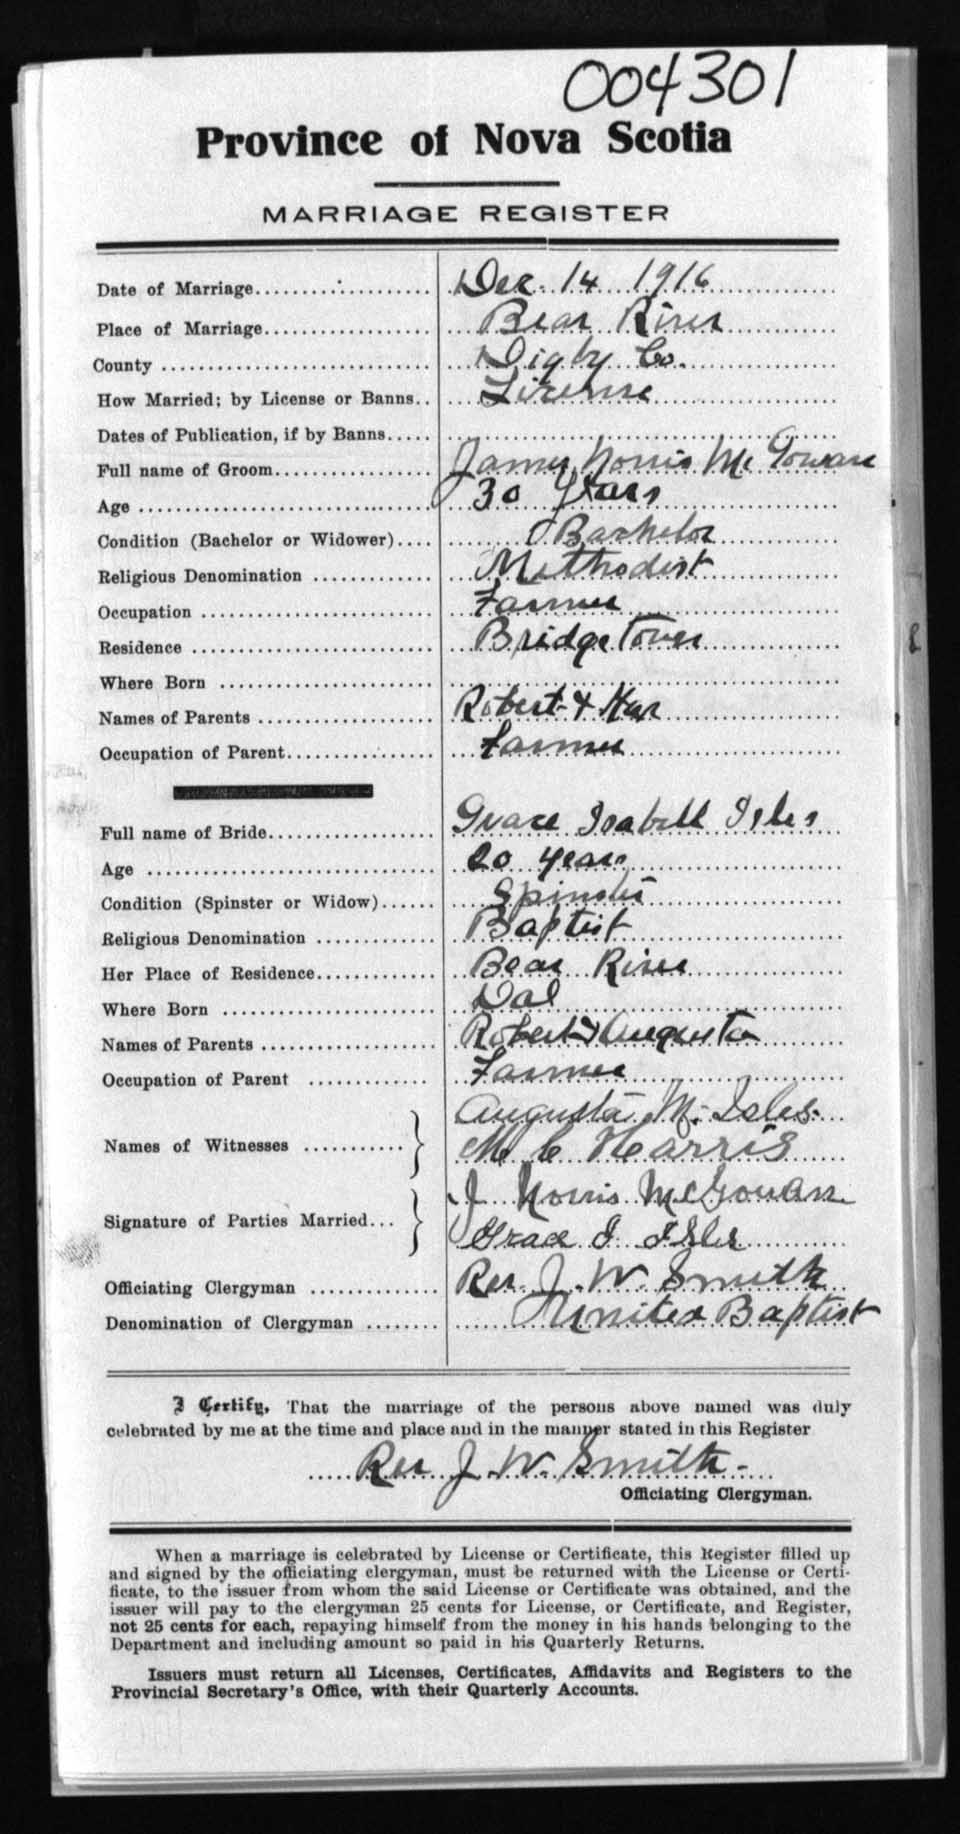 004301
Province of Nova Scotia
MARRIAGE REGISTER
Date of Marriage Dec. 14 1916
Place of Marriage Bear River
County Digby Co.
How Married; by License or Banns License
Dates of Publication, if by Banns
Full name of Groom James Norris McGowan
Age 30 years
Condition (Bachelor or Widower) Bachelor
Religious Denomination Methodist
Occupation Farmer
Residence Bridgetown
Where Born
Names of Parents Robert &
Occupation of Parent Farmer
Full name of Bride Grace Isabell Isles
Age 20 years
Condition (Spinster or Widow) Spinster
Religious Denomination Baptist
Her Place of Residence Bear River
Where Born
Names of Parents Robert & Augusta
Occupation of Parent Farmer
Names of Witnesses Augusta M. Isles.
M C Harris
Signature of Parties Married J Norris McGowan
Grace I Isles
Officiating Clergyman Rev. J. W. Smith
Denomination of Clergyman United Baptist
I Certify, That the marriage of the persons above named was duly
celebrated by me at the time and place and in the manner stated in this Register
Rev J. W. Smith
Officiating Clergyman.
When a marriage is celebrated by License or Certificate, this Register filled up
and signed by the officiating clergyman, must be returned with the License or Certi-
ficate, to the issuer from whom the said License or Certificate was obtained, and the
issuer will pay to the clergyman 25 cents for License, or Certificate, and Register,
not 25 cents for each, repaying himself from the money in his hands belonging to the
Department and including amount so paid in his Quarterly Returns.
Issuers must return all Licenses, Certificates, Affidavits and Registers to the
Provincial Secretary's Office, with their Quarterly Accounts.